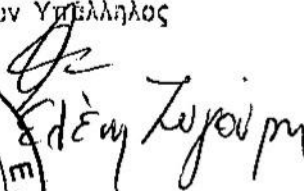 ων Υπάλληλος
Ελένη Ζυγούρη